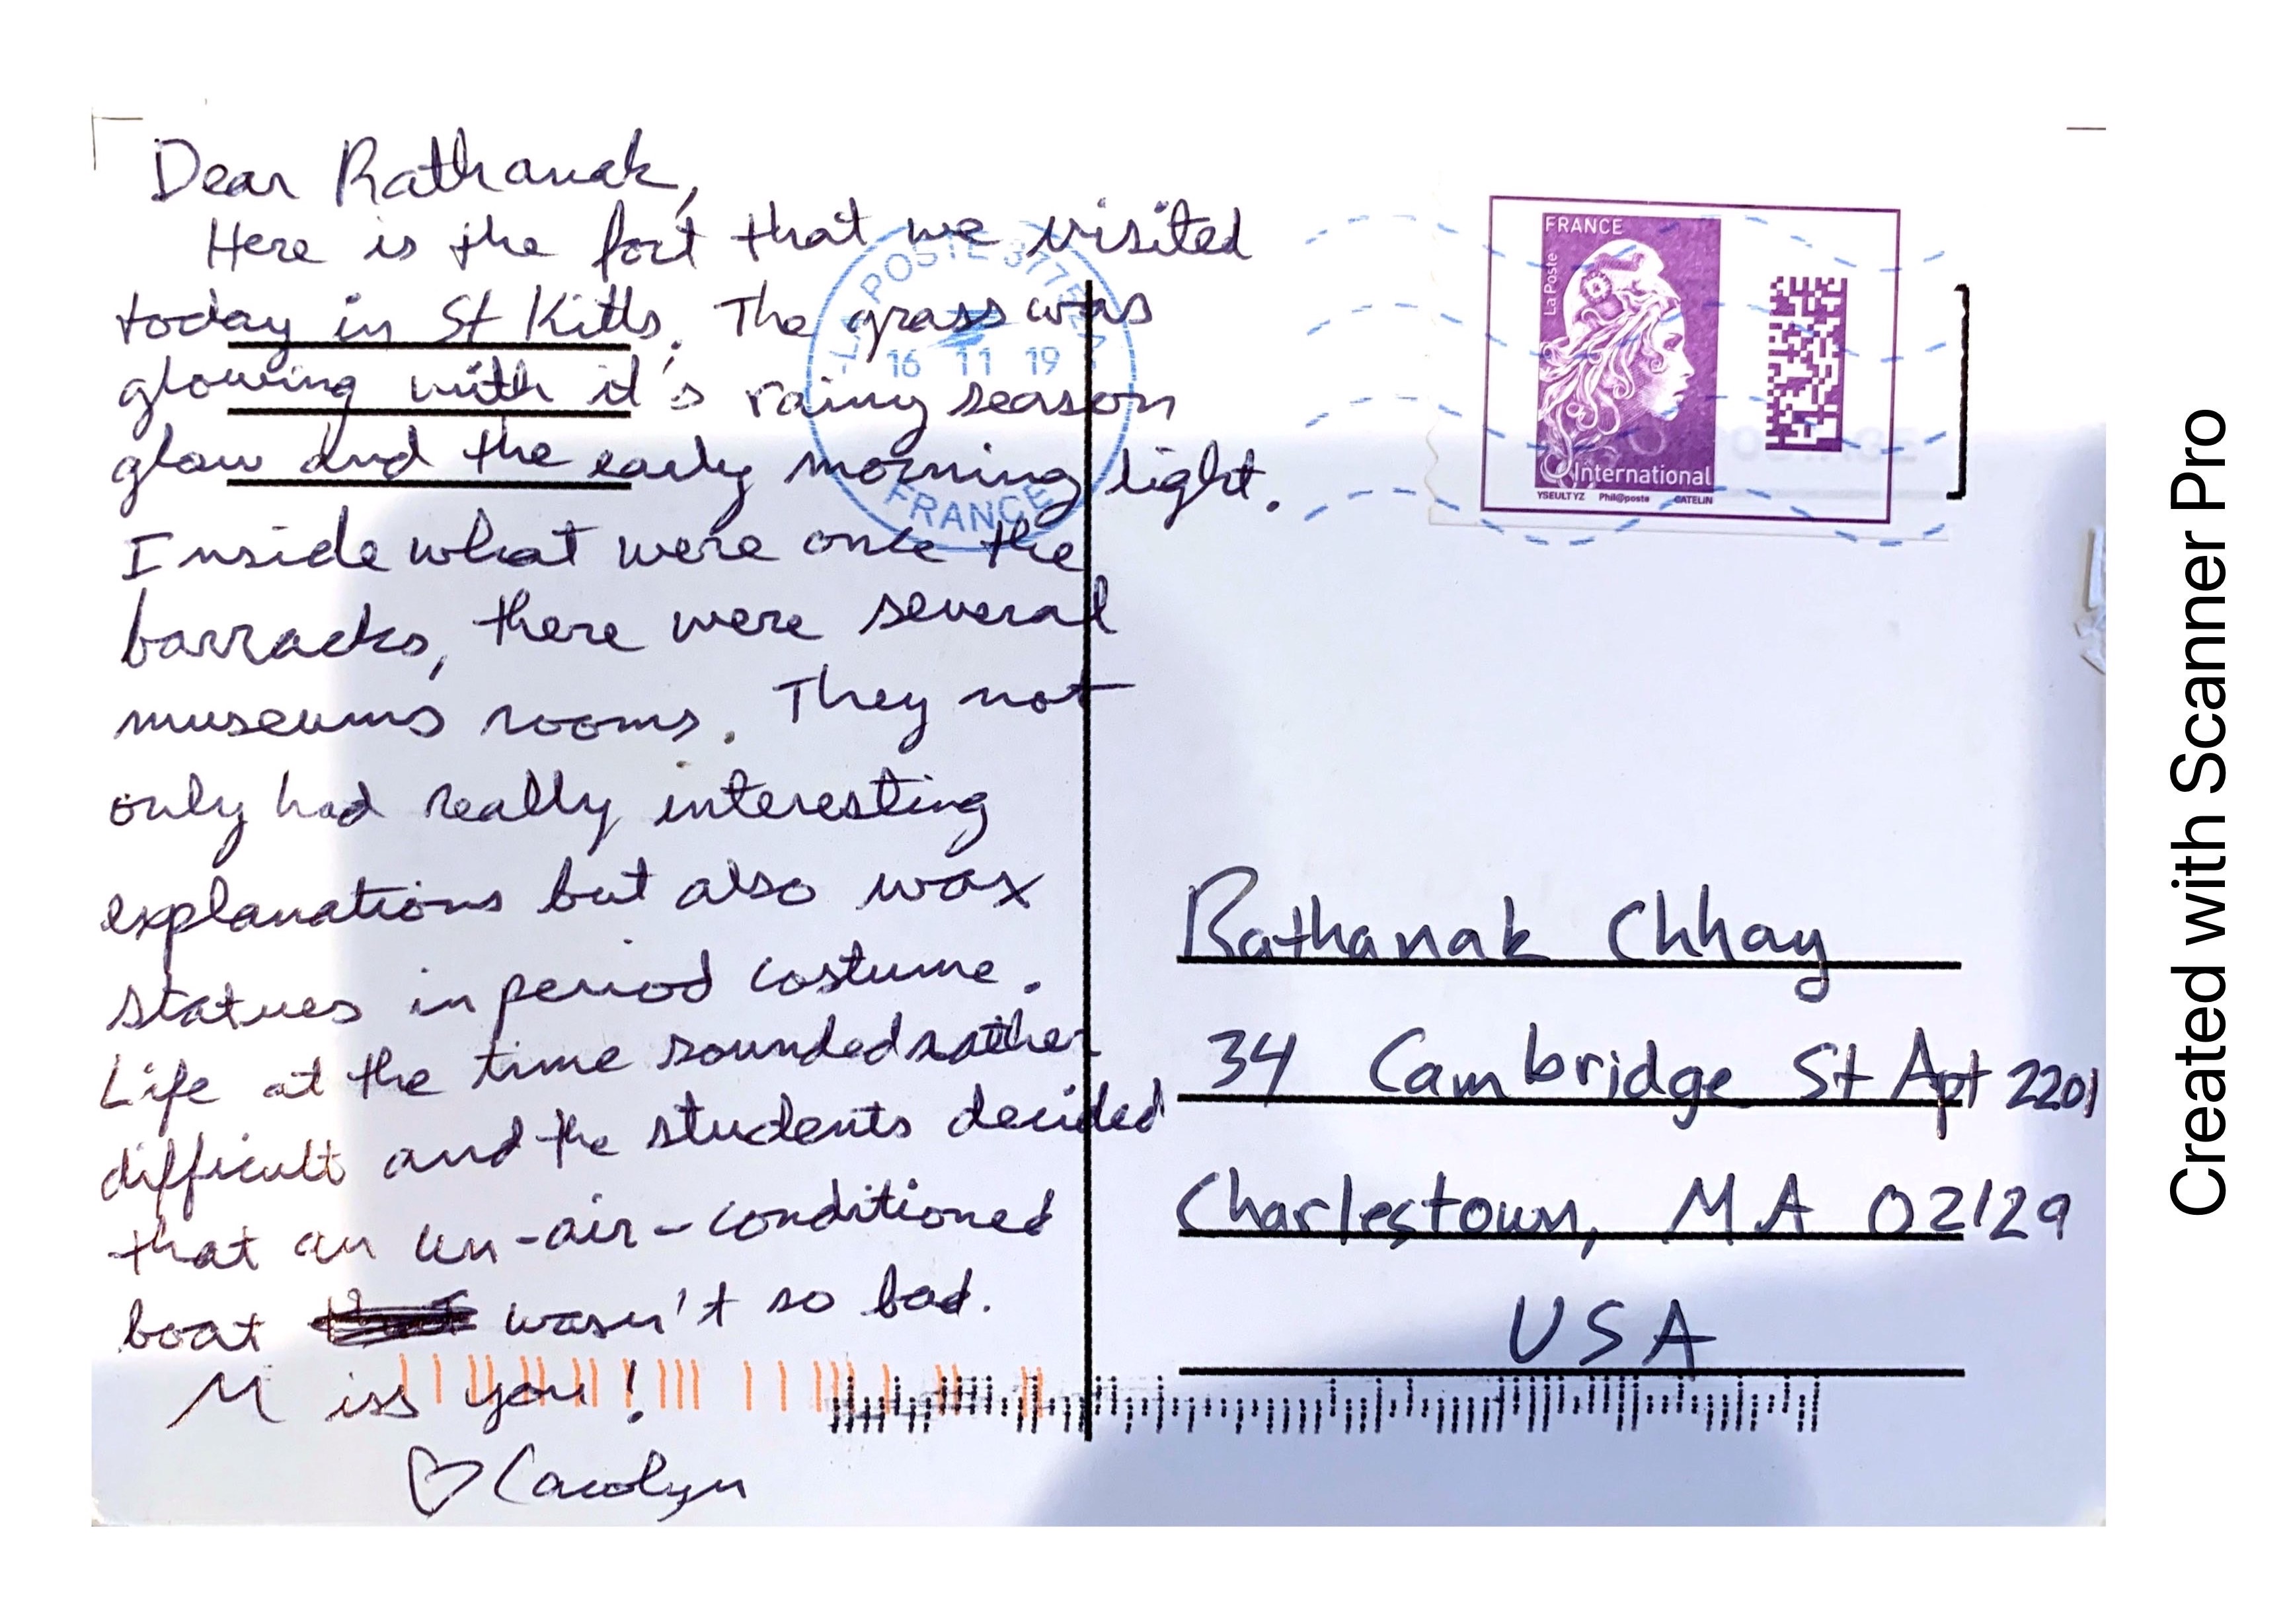 Dear Rathanak,
Here is the fort that we visited
today in St Kitts. The grass was
glowing with it's rainy season
glow and the early morning light.
Inside what were once the
barracks, there were several
museums rooms. They not
only had really interesting
explanations but also wax
statues in period costume.
Life at the time sounded rather
difficult and the students decided
that an un-air-conditioned
boat wasn't so bad.
Miss you!
♡ Carolyn
LA POSTE
16 11 19
FRANCE
FRANCE
La Poste
International
YSEULTYZ Phil@poste CATELIN
Rathanak Chhay
34 Cambridge St Apt 2201
Charlestown, MA 02129
USA
Created with Scanner Pro